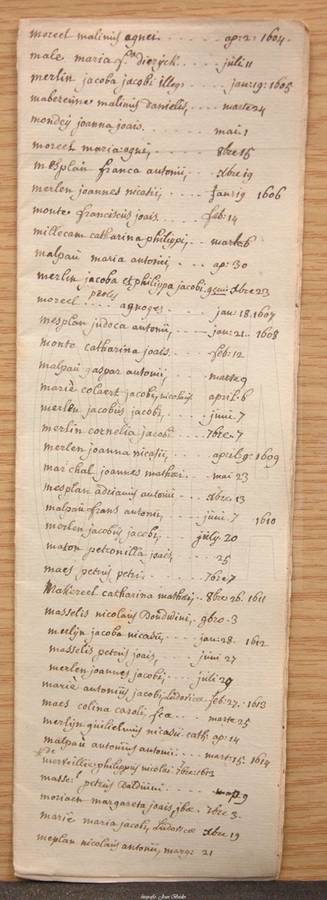 moreel malinus agnei ap: 2: 1604
male maria fa dierijck julii 11
merlin jacoba jacobi illeg: jan: 19: 1605
malinus danielis, marte 24
joanna joais mai: 1
moreel maria: agnei, 8bre 15
mesplau franca antonii, xbre 19
merlen joannes nicasii, Jan: 19 1606
monte franciscus joais. feb: 14
catharina philippi, marte: 6
malpau maria antonii ap: 30
merlin jacoba et philippa jacobi gem: xbre 23
moreel proles agnoges jan: 18: 1607
mesplau judoca antonii, jan: 21. 1608
monte catharina joais. feb: 12
malpau gaspar antonii marte 9
marie colaert jacobi, april: 6
merlen jacobus jacobi, junii: 7
merlin cornelia jacobi 7bre. 7
merlen joanna nicasii, april: 9: 1609
mar'chal joannes mathei mai 23
mesplau adrianus antonii xbre 13
malpau frans antonii, junii. 7 1610
merlen jacobus jacobi, july. 20
maton petronilla joais 25
maes petrus petri 7bre 7
Makereel catharina mathei, 8bre 26. 1611
masselis nicolaus Bauduini, 9bre. 3
merlijn jacoba nicasii, jan: 28. 1612
masselis petrus joais, junii 27
merlen joannes jacobi, julii 29
marie antonius jacobi, Ludovicae feb: 27. 1613
maes colina caroli, fca marte 25
merlijn guilielmus nicasii cath: ap: 14
malpau antonius antonii mart: 15. 1614
philippus nicolai 7bre 1613
massel petrus balduini 9
margareta joais, jbae 7bre 3.
marie maria jacobi, Ludovicae xbre 19
mesplau nicolaus antonii, marg: 21